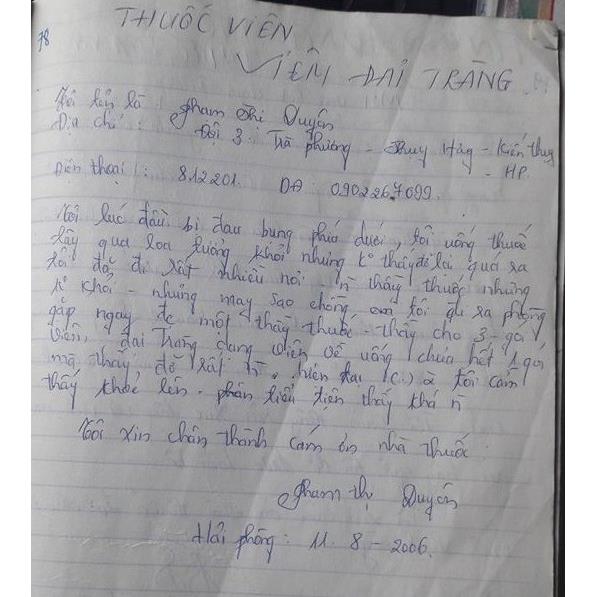 78
THUỐC VIÊN
VIÊM ĐẠI TRÀNG
Tôi tên là : Phạm Thị Duyên
Địa chỉ : Đội 3 : Trà phương - Thuỵ Hương - Kiến thuỵ
- HP.
Điện thoại : 812201. DĐ : 0902267099.
Tôi lúc đầu bị đau bụng phía dưới, tôi uống thuốc
lấy qua loa tưởng khỏi nhưng k° thấy đỡ lại quá ra
tôi đã đi rất nhiều nơi - n thầy thuốc nhưng
k° khỏi - nhưng may sao chồng tôi đi ra phòng
gặp ngay đc một thầy thuốc - thầy cho 3 gói
viên, đại Tràng dạng viên về uống chưa hết 1 gói
mà thấy đỡ rất n. hiện tại (c.) à tôi cảm
thấy khoẻ lên. phần tiểu tiện thấy khá n
Tôi xin chân thành cám ơn nhà thuốc
Phạm thị Duyên
Hải phòng : 11 . 8 - 2006.